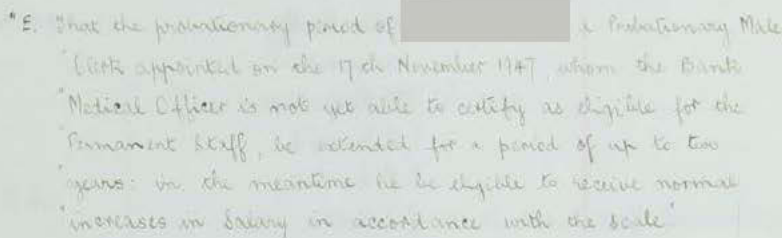 "E. That the probationary period of a Probationary Male
"Clerk appointed on the 17th November 1947 whom the Bank
"Medical Officer is not yet able to certify as eligible for the
"Permanent Staff, be extended for a period of up to two
"years: in the meantime he be eligible to receive normal
"increases in Salary in accordance with the scale"